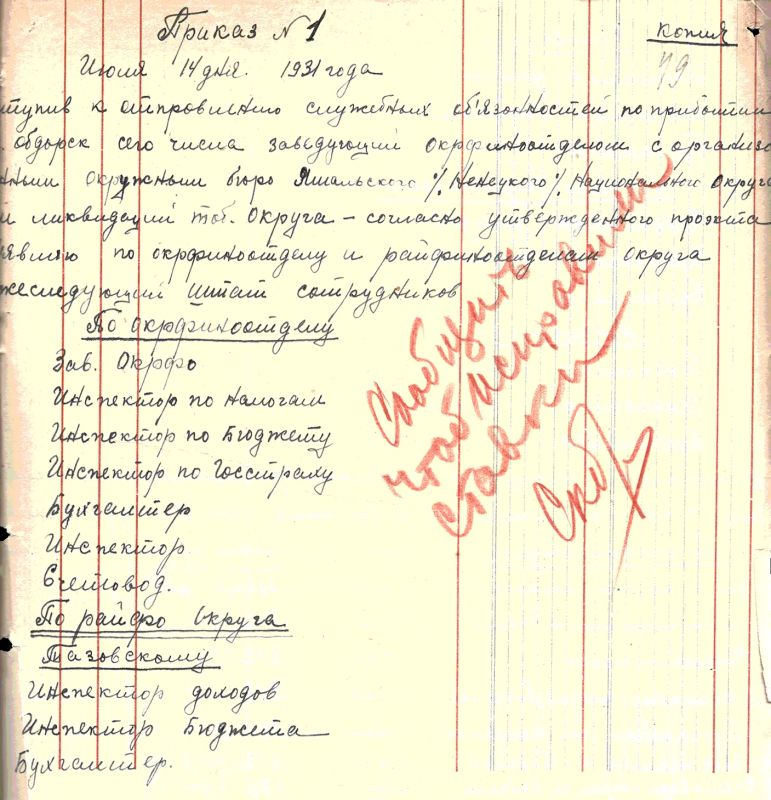 Приказ № 1
копия
Июля 14 дня. 1931 года
79
ступив к отправлению служебных об'язанностей по прибытии
обдорск сего числа заведующий Окрфинотделом с организо
нным окружным бюро Ямальского %Ненецкого% Национального Округа
и ликвидаций тоб. Округа – согласно утвержденного проэкта
явлю по окрфинотделу и райфинотделам округа
жеследующий штат сотрудников
По окрфинотделу
Зав. Окрфо
Инспектор по налогам
Инспектор по Бюджету
Инспектор по Госстраху
Бухгалтер
Инспектор
Счетовод.
По райфо Округа
Тазовскому
Инспектор доходов
Инспектор Бюджета
Бухгалтер.
Сообщить
чтоб исправили
ставки